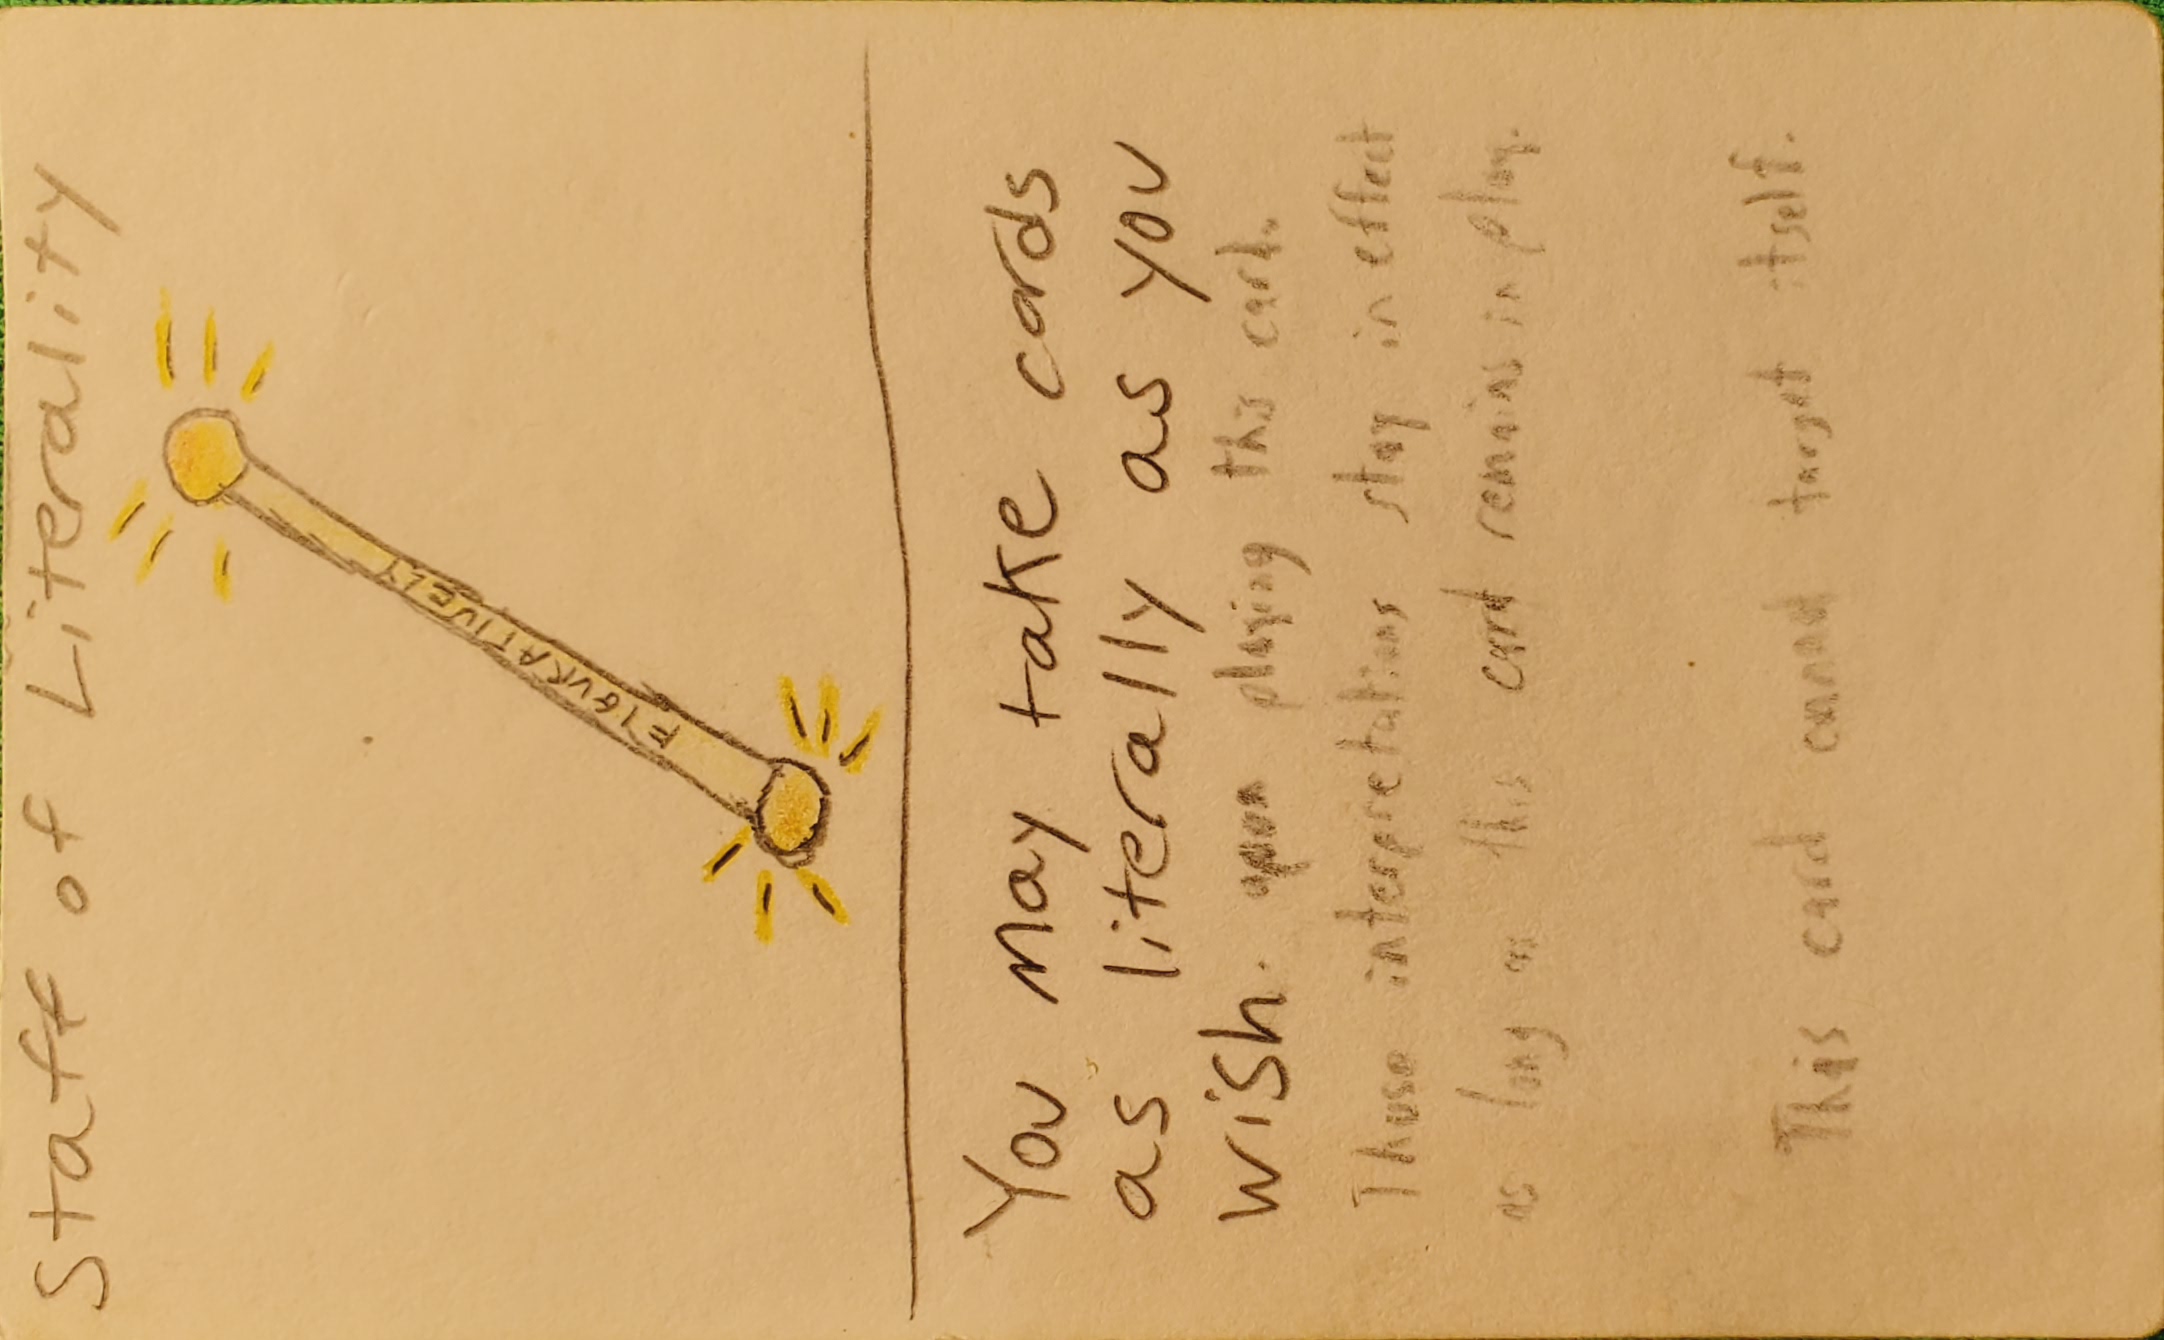 Staff of Literality
FIGURATIVELY
You may take cards
as literally as you
wish. upon playing this card.
Those interpretations stay in effect
as long as this card remains in play.
This card cannot target itself.